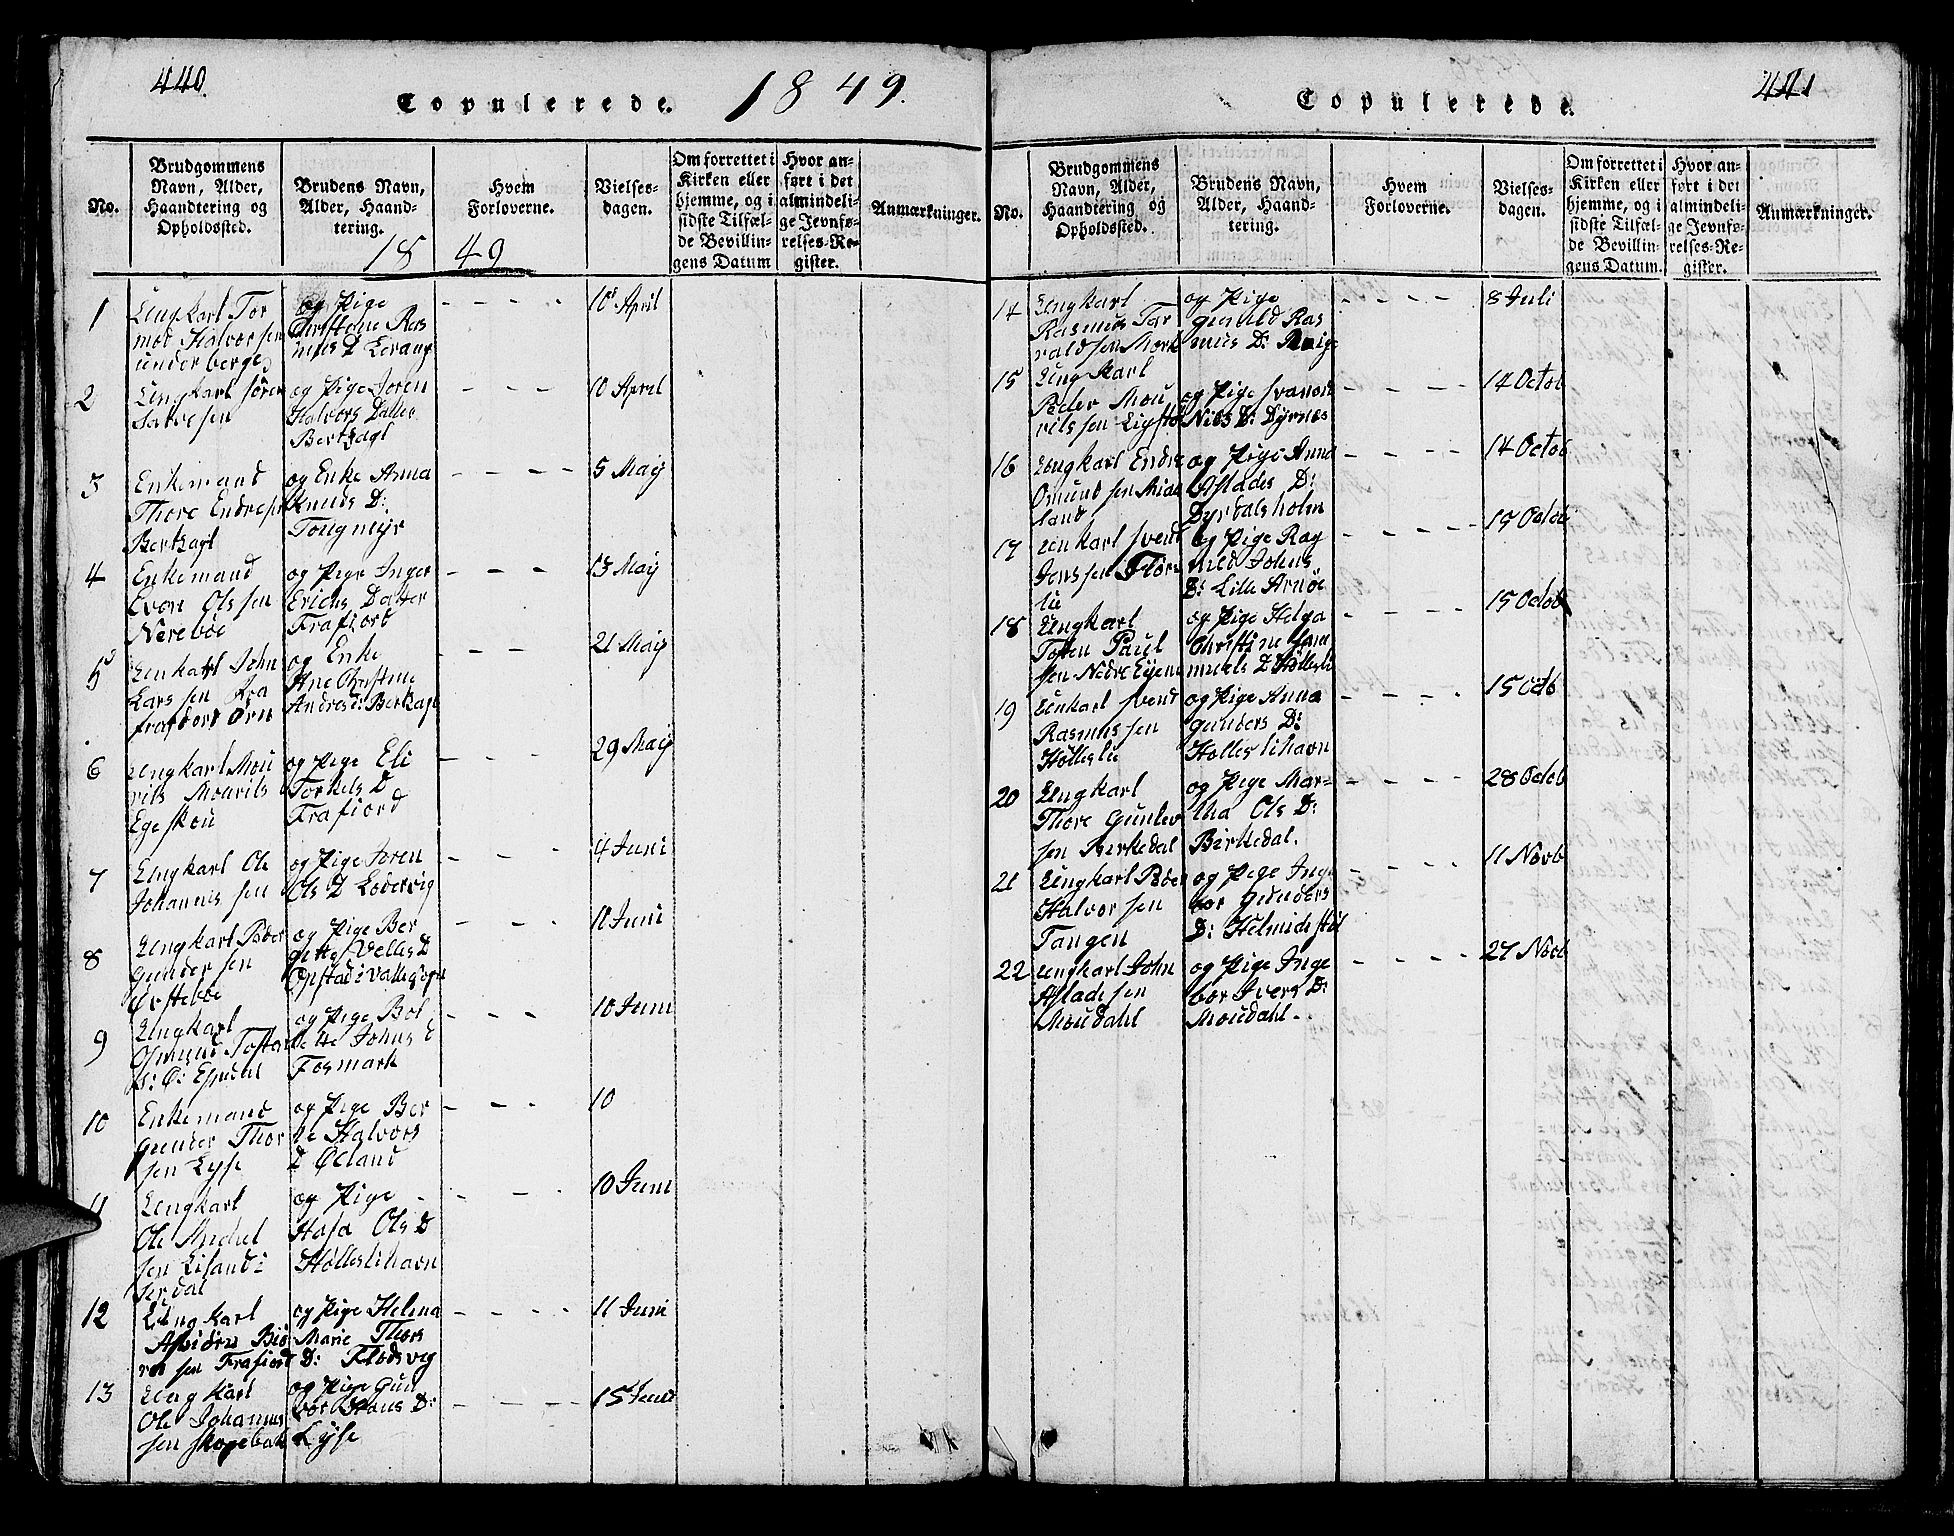 440.
Copulerede.
1849.
No.
Brudgommens Navn, Alder, Haandtering og Opholdssted.
Brudens Navn, Alder, Haandtering.
Hvem Forloverne.
Vielsesdagen.
Om forrettet i Kirken eller hjemme, og i sidste Tilfælde Bevillingens Datum
Hvor anført i det almindelige Jevnførelses-Register.
Anmærkninger.
1849
1
Ungkarl Tor
mod Halvorsen
underberge
og Pige
Christene Ras
mus D
10 April
2
Ungkarl Sören
Salvesen
og Pige Joren
Halvors Datter
Bertzagl
10 April
3
Enkemand
Thore Endresen
Bertzagl
og Enke Anna
Knuds D:
Tougmyr
5 Maij
4
Enkemand
Even Olssen
Nereböe
og Pige Inger
Erichs Datter
Frafiord
13 Maij
5
Ungkarl John
Lars sen fra
frafiord Örn
og Enke
Ane Christine
Andres D: Bertzagl
21 Maij
6
Ungkarl Mou
rits Mourits
Egeskou
og Pige Eli
Torkels D
Frafiord
29 Maij
7
Ungkarl Ole
Johannes sen
og Pige Joren
Ols D Lodervig
4 Juni
8
Ungkarl Peder
Gunder sen
Örsteböe
og Pige Ber
gitte Velles D
Opstad i Valle Sogn
10 Juni
9
Ungkarl
Osmund Tosten
S: Ö: Espedal
og Pige Bol
lette Johns D
Fosmark
10 Juni
10
Enkemand
Gunder Thor
sen Lyse
og Pige Ber
te Halvors
D Öeland
10
11
Ungkarl
Ole Michel
sen Lisand i
Serdal
og Pige
Hasa Ols D
Hölleslihavn
10 Juni
12
Ungkarl
Asbiörn Biö
rn sen Frafiord
og Pige Helena
Marie Thors
D: Flodsvig
11 Juni
13
Ungkarl
Ole Johannes
sen Skogebak
og Pige Gun
bor Hans D:
Lyse
15 Juni
441
Copulerede.
No.
Brudgommens Navn, Alder, Haandtering og Opholdssted.
Brudens Navn, Alder, Haandtering.
Hvem Forloverne.
Vielsesdagen.
Om forrettet i Kirken eller hjemme, og i sidste Tilfælde Bevillingens Datum.
Hvor anført i det almindelige Jevnførelses-Register.
Anmærkninger.
14
Ungkarl
Rasmus Tor
vald sen Mork
og Pige
Gunild Ras
mus D:
8 Juli
15
Ungkarl
Peder Mou
rits sen
og Pige Svanou
Niels D: Dyrnes
14 Octob
16
Ungkarl Endre
Osmund sen Miae
land
og Pige Anna
Aslades D:
Dyrdalsholm
14 Octob
17
Unkarl Svend
Jens sen Flörs
lie
og Pige Rag
nild Johns
D: Lille Arnöe
15 Octob
18
Ungkarl
Tosten Paul
sen Nedre Eyene
og Pige Helga
Christine Sam
muels D Höllesli
15 Octob
19
Unkarl Svend
Rasmus sen
Höllesli
og Pige Anna
Gunders D:
Hölleslihavn
15 Octb
20
Ungkarl
Thore Gunlev
sen Birkedal
og Pige Mar-
tha Ols D:
Birkedal.
28 Octob
21
Ungkarl Peder
Halvor sen
Tangen
og Pige Inge
bor Gunders
D: Helmichstöl
11 Novb
22
Ungkarl John
Aslade sen
Moudahl
og Pige Inge
bor Ivers D:
Moudahl.
27 Novb